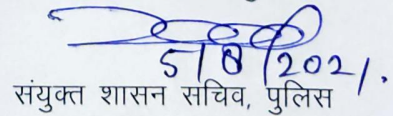 5/8/2021.
संयुक्त शासन सचिव, पुलिस